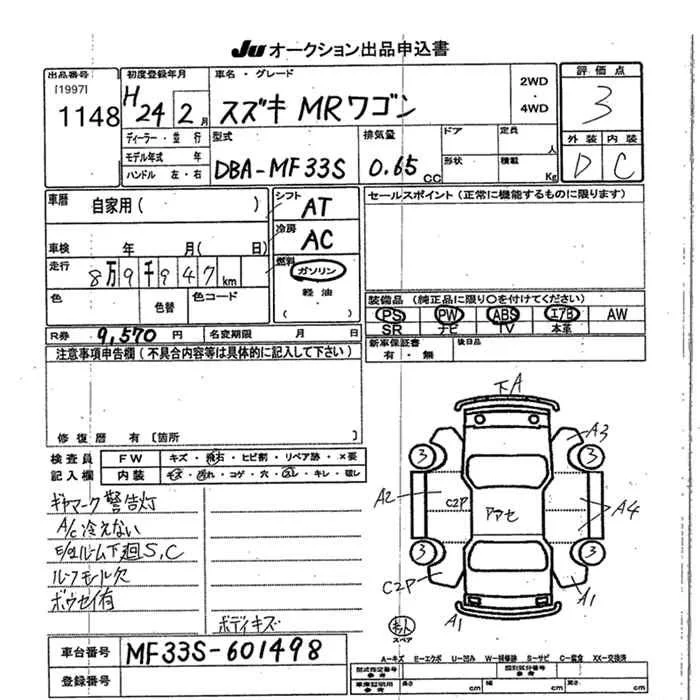 JU オークション出品申込書
出品番号 初度登録年月 車名・グレード 2WD・4WD 評価点
[1997] 1148 H24 2月 スズキ MRワゴン 3
ディーラー・並行 型式 排気量 ドア 定員 人 外装 内装
モデル年式 年 DBA-MF33S 0.65 CC 形状 積載 Kg D C
ハンドル 左・右
車歴 自家用( ) シフト AT セールスポイント (正常に機能するものに限ります)
冷房 AC
車検 年 月( 日)
走行 8万9千947km 燃料 ガソリン
軽油
( )
色 色替 色コード 装備品 (純正品に限り○を付けてください)
PS PW ABS エアB AW
SR ナビ TV 本革
R券 9,570 円 名変期限 月 日 新車保証書 有・無 後日品
注意事項申告欄 (不具合内容等は具体的に記入して下さい)
修復歴 有 [箇所 ]
検査員 FW キズ・飛石・ヒビ割・リペア跡・×要
記入欄 内装 キズ・汚れ・コゲ・穴・スレ・キレ・破レ
ギヤマーク警告灯
A/C冷えない
E/gルーム下廻S,C
ルーフモール欠
ボウセイ有
ボディキズ
下A
A3
3 3
A2 C2P アアセ A4
3 3
C2P A1
A1
スペア
車台番号 MF33S-601498
登録番号
A-キズ E-エクボ U-凹み W-補修跡 S-サビ C-腐食 XX-交換済
型式指定番号 参考 類別区分番号 参考
車庫証明用 参考 長さ cm 幅 cm 高さ cm